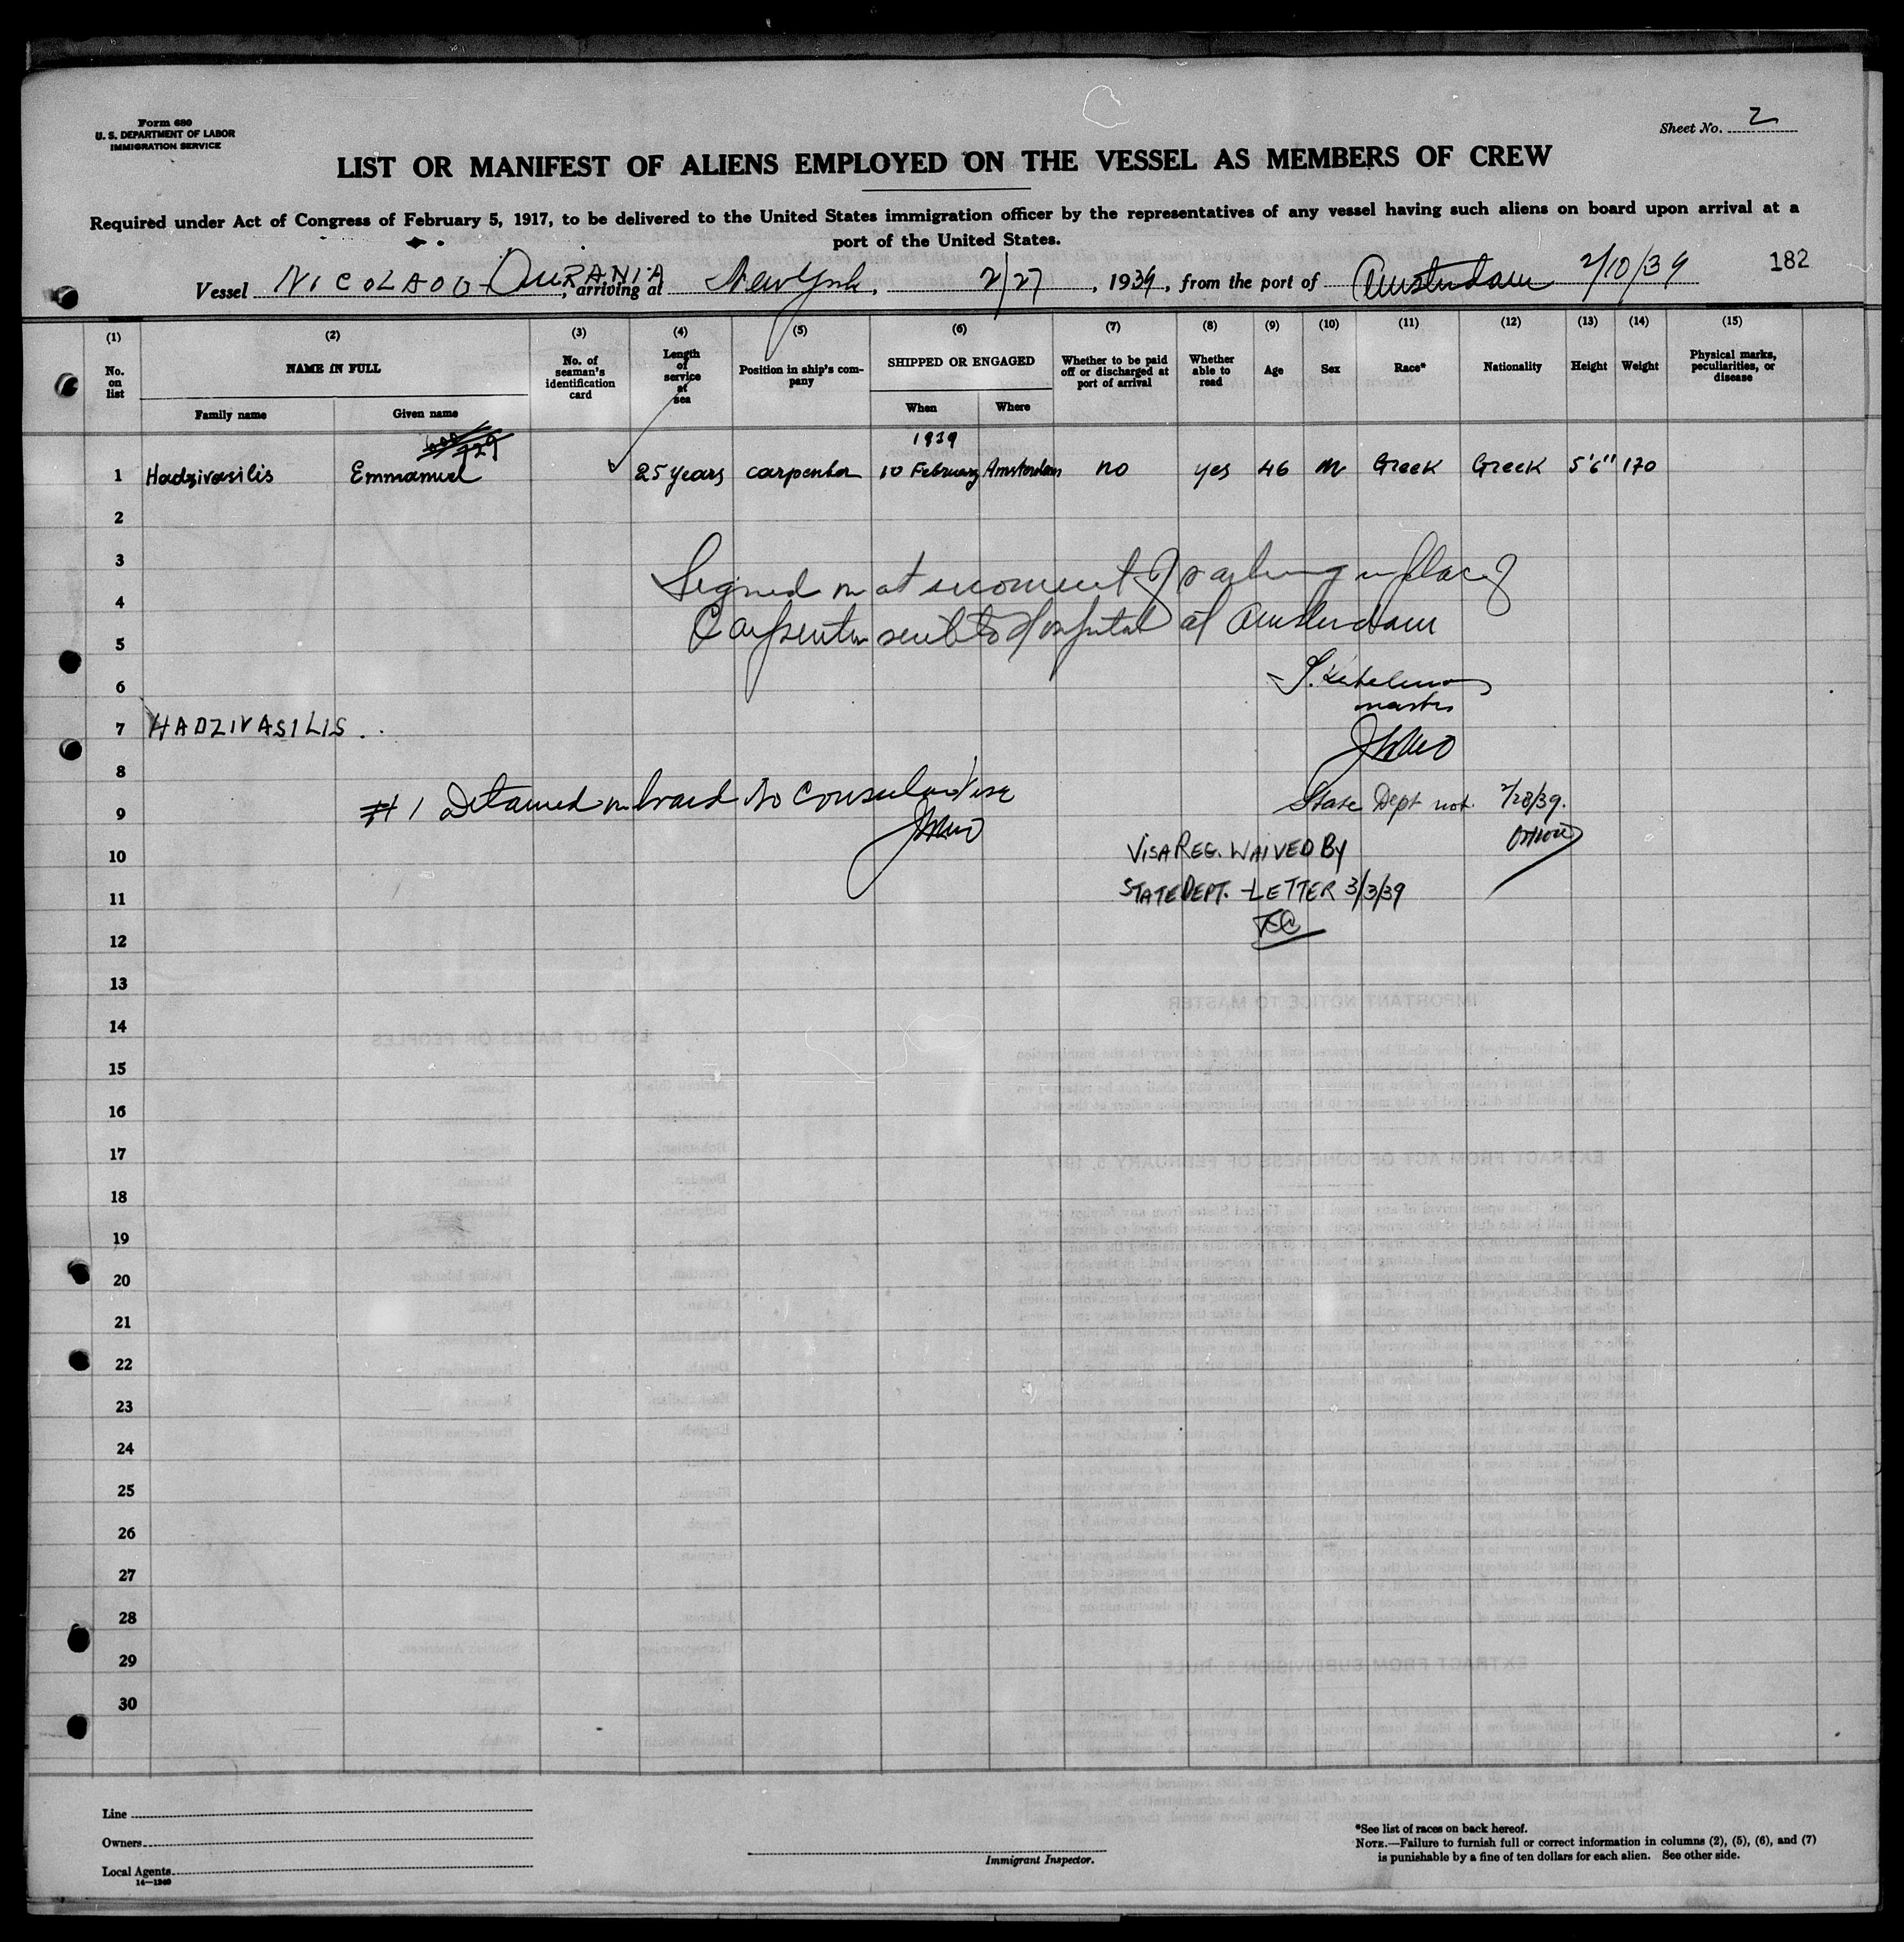 Form 680
U. S. DEPARTMENT OF LABOR
IMMIGRATION SERVICE
Sheet No. 2
LIST OR MANIFEST OF ALIENS EMPLOYED ON THE VESSEL AS MEMBERS OF CREW
Required under Act of Congress of February 5, 1917, to be delivered to the United States immigration officer by the representatives of any vessel having such aliens on board upon arrival at a
port of the United States.
Vessel NICOLAOU OURANIA, arriving at New York, 2/27, 1939, from the port of Amsterdam 2/10/39
182
(1) (2) (3) (4) (5) (6) (7) (8) (9) (10) (11) (12) (13) (14) (15)
No. on list
NAME IN FULL
Family name
Given name
No. of seaman's identification card
Length of service at sea
Position in ship's company
SHIPPED OR ENGAGED
When
Where
Whether to be paid off or discharged at port of arrival
Whether able to read
Age
Sex
Race*
Nationality
Height
Weight
Physical marks, peculiarities, or disease
1939
1 Hadzivasilis Emmanuel 25 years carpenter 10 February Amsterdam no yes 46 M Greek Greek 5'6" 170
2
3
Signed on at moment of sailing in place of
4
Carpenter sent to Hospital at Amsterdam
5
6
master
7 HADZIVASILIS.
8
#1 Detained on board No Consular Visa
State Dept not. 2/28/39.
9
10
VISA REG. WAIVED BY
11
STATE DEPT. -LETTER 3/3/39
12
13
14
15
16
17
18
19
20
21
22
23
24
25
26
27
28
29
30
Line
Owners
Local Agents
14—1240
Immigrant Inspector.
*See list of races on back hereof.
NOTE.—Failure to furnish full or correct information in columns (2), (5), (6), and (7)
is punishable by a fine of ten dollars for each alien. See other side.